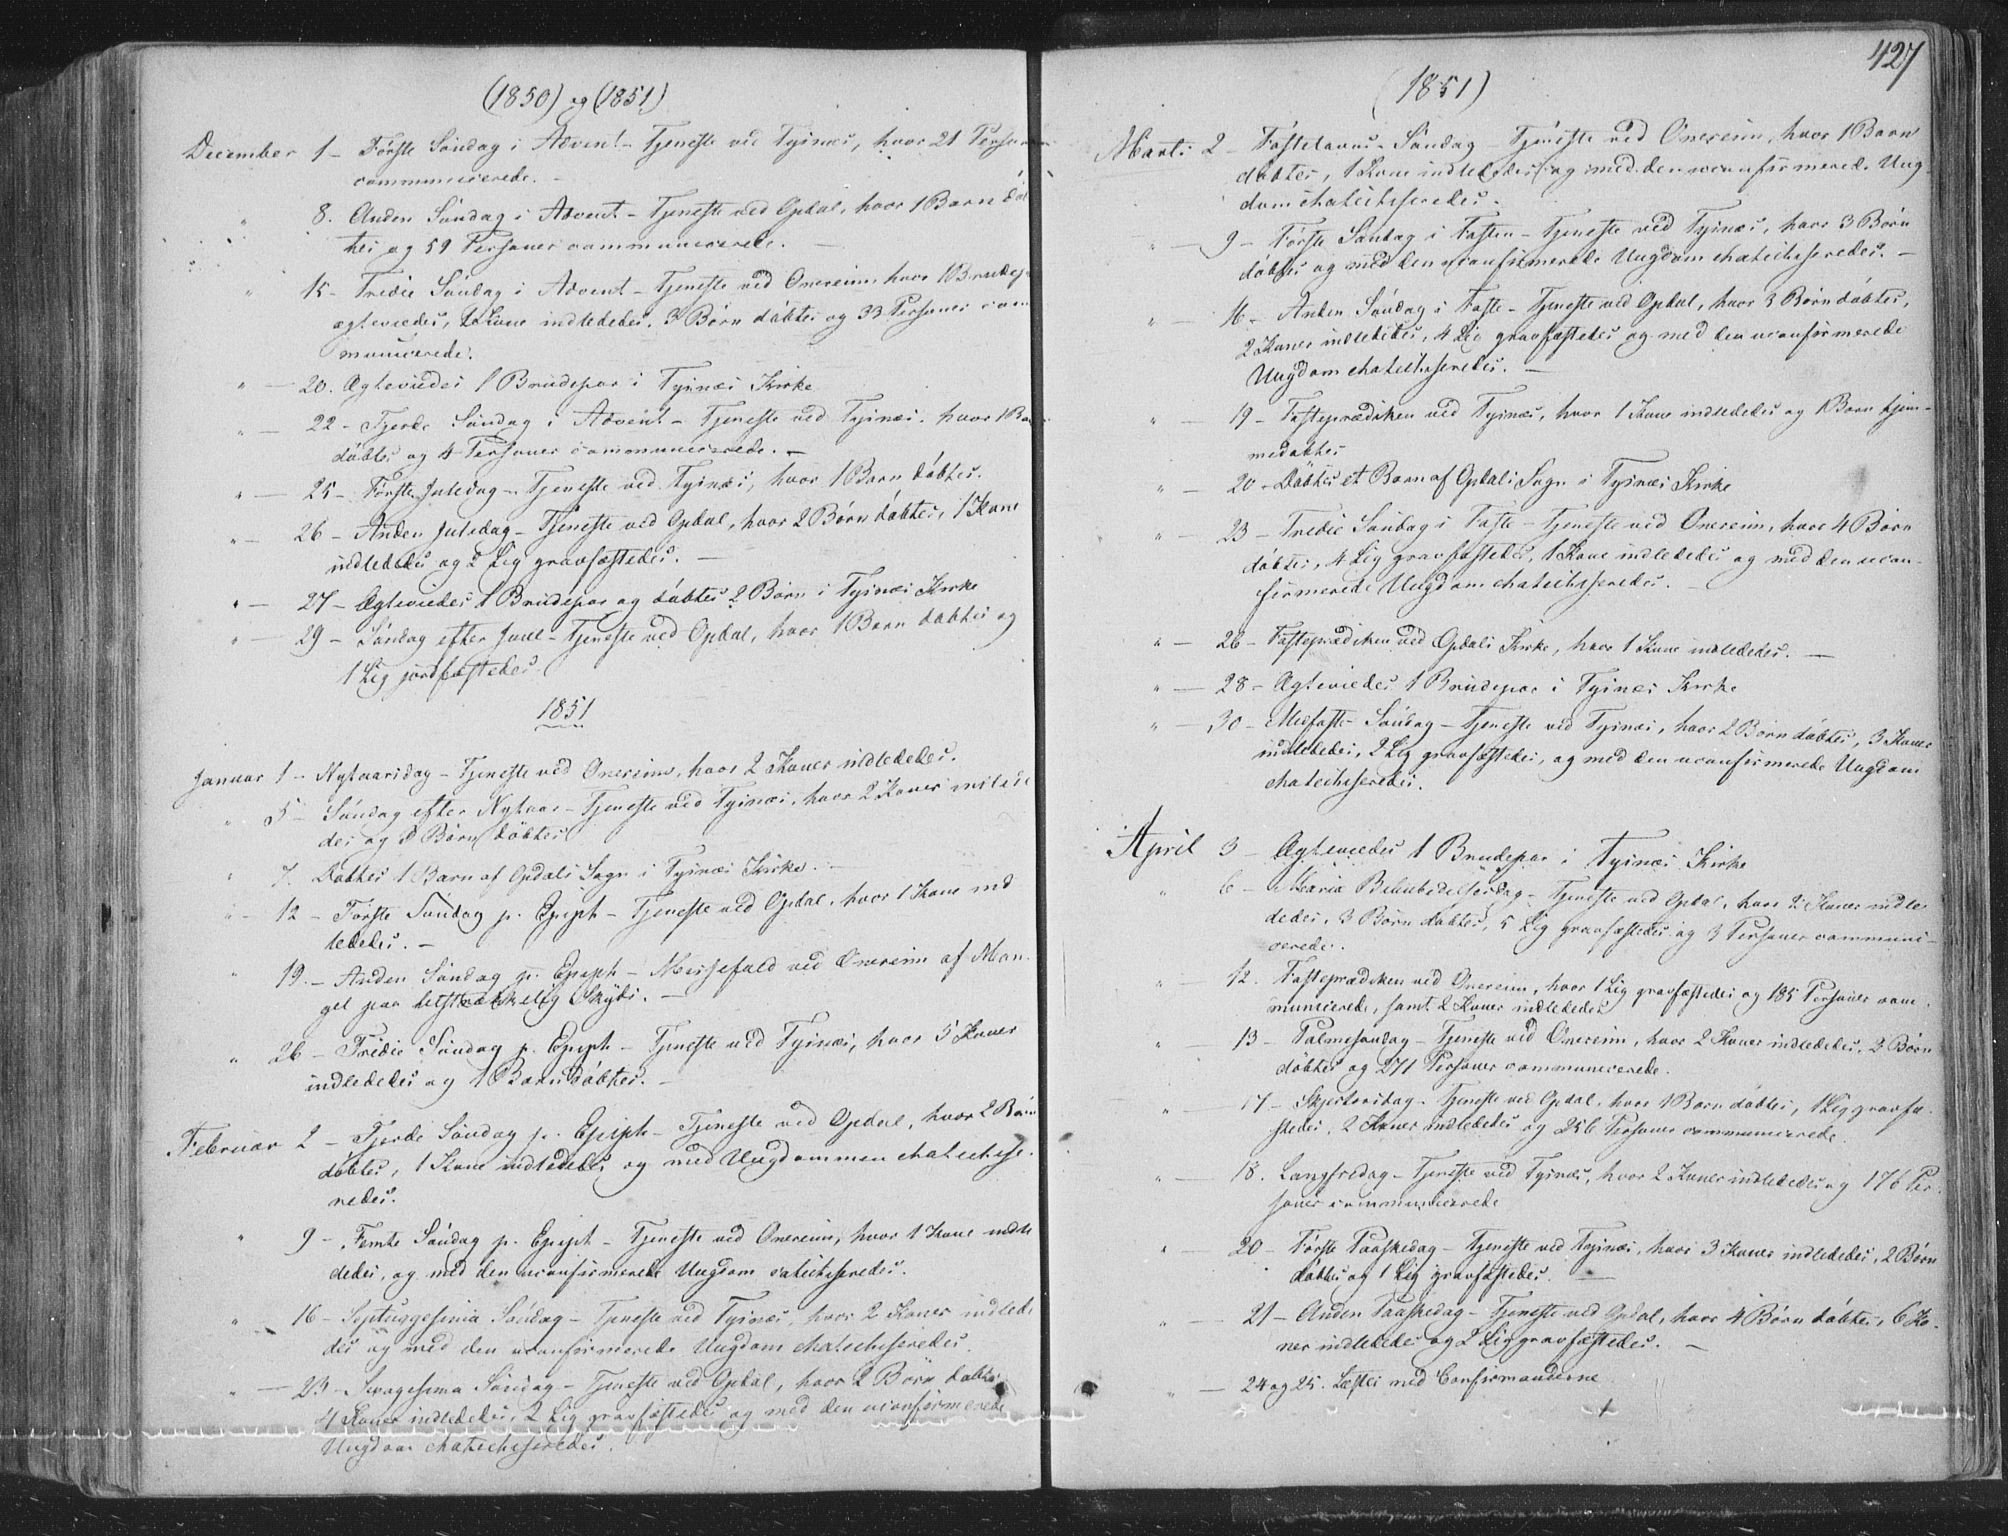 (1850) og (1851)
December 1 – Første Søndag i Advent – Tjeneste ved Tysnæs, hvor 21 Personer
communicerede. –
" 8. Anden Søndag i Advent – Tjeneste ved Opdal, hvor 1 Barn døb-
tes og 59 Personer communicerede. –
" 15 – Tredie Søndag i Advent – Tjeneste ved Onereim, hvor 1 Brudepar
ægteviedes, 1 Kone indlededes, 3 Børn døbtes og 33 Personer com
municerede.
" — 20. Ægteviedes 1 Brudepar i Tysnæs Kirke
" — 22 – Fjerde Søndag i Advent – Tjeneste ved Tysnæs, hvor 1 Barn
døbtes og 4 Personer communicerede. –
" — 25 – Første Juledag – Tjeneste ved Tysnæs, hvor 1 Barn døbtes.
" — 26 – Anden Juledag – Tjeneste ved Opdal, hvor 2 Børn døbtes, 1 Kone
indlededes og 2 Lig gravfæstedes. –
" — 27 – Ægteviedes 1 Brudepar og døbtes 2 Børn i Tysnæs Kirke
" — 29 – Søndag efter Juul – Tjeneste ved Opdal, hvor 1 Barn døbtes og
1 Lig jordfæstedes
1851
Januar 1 – Nytaarsdag – Tjeneste ved Onereim, hvor 2 Koner indlededes.
" 5 – Søndag efter Nytaar – Tjeneste ved Tysnæs, hvor 2 Koner indlede
des og 3 Børn døbtes
" 7. Døbtes 1 Barn af Opdals Sogn i Tysnæs Kirke. –
" — 12 – Første Søndag p. Epiph – Tjeneste ved Opdal, hvor 1 Kone ind
lededes. –
" 19. – Anden Søndag p. Epiph – Messefald ved Onereim af Man-
gel paa tilstrækkelig Skyds. –
" 26 – Tredie Søndag p. Epiph – Tjeneste ved Tysnæs, hvor 5 Koner
indlededes og 1 Barn døbtes. –
Februar 2 – Fjerde Søndag p. Epiph – Tjeneste ved Opdal, hvor 2 Børn
døbtes, 1 Kone indlededes og med Ungdommen chatechise-
redes.
" 9 – Femte Søndag p. Epiph – Tjeneste ved Onereim, hvor 1 Kone indle
dedes, og med den uconfirmerede Ungdom catechiseredes.
" 16 – Septuagesima Søndag – Tjeneste ved Tysnæs, hvor 2 Koner indlede
des og med den uconfirmerede Ungdom chatechiseredes.
" — 23 – Sexagesima Søndag – Tjeneste ved Opdal, hvor 2 Børn døbtes
4 Koner indlededes, 2 Lig gravfæstedes og med den uconfirmerede
Ungdom chatechiseredes.
427
(1851)
Marts 2 – Fastelavns-Søndag – Tjeneste ved Onereim, hvor 1 Barn
døbtes, 1 Kone indlededes og med den uconfirmerede Ung-
dom chatechiseredes. –
" — 9 – Første Søndag i Fasten – Tjeneste ved Tysnæs, hvor 3 Børn
døbtes og med den uconfirmerede Ungdom chatechiseredes. –
" — 16 – Anden Søndag i Faste – Tjeneste ved Opdal, hvor 3 Børn døbtes,
2 Koner indlededes, 4 Lig gravfæstedes og med den uconfirmerede
Ungdom chatechiseredes. –
" — 19 – Fasteprædiken ved Tysnæs, hvor 1 Kone indlededes og 1 Barn hjem-
medøbtes
" — 20 – Døbtes et Barn af Opdals Sogn i Tysnæs Kirke
" — 23 – Tredie Søndag i Faste – Tjeneste ved Onereim, hvor 4 Børn
døbtes, 4 Lig gravfæstedes, 1 Kone indlededes og med den ucon-
firmerede Ungdom chatechiseredes. –
" — 26 – Fasteprædiken ved Opdals Kirke, hvor 1 Kone indlededes. –
" — 28 – Ægteviedes 1 Brudepar i Tysnæs Kirke
" — 30 – Midfaste-Søndag – Tjeneste ved Tysnæs, hvor 2 Børn døbtes, 3 Koner
indlededes, 2 Lig gravfæstedes, og med den uconfirmerede Ungdom
chatechiseredes.
April 3 – Ægteviedes 1 Brudepar i Tysnæs Kirke
" 6 – Maria Bebudelsesdag – Tjeneste ved Opdal, hvor 2 Koner indle-
dedes, 3 Børn døbtes, 5 Lig gravfæstedes og 3 Personer communi-
cerede.
" — 12. Fasteprædiken ved Onereim, hvor 1 Lig gravfæstedes og 185 Personer com-
municerede, samt 2 Koner indlededes
" — 13 – Palmesøndag – Tjeneste ved Onereim, hvor 2 Koner indlededes, 2 Børn
døbtes og 271 Personer communicerede.
" — 17 – Skjertorsdag – Tjeneste ved Opdal, hvor 1 Barn døbtes, 1 Lig gravfæ-
stedes, 2 Koner indlededes og 256 Personer communicerede.
" — 18. Langfredag – Tjeneste ved Tysnæs, hvor 2 Koner indlededes og 176 Per-
soner communicerede
" — 20 – Første Paaskedag – Tjeneste ved Tysnæs, hvor 3 Koner indlededes, 2 Børn
døbtes og 1 Lig gravfæstedes. –
" — 21 – Anden Paaskedag – Tjeneste ved Opdal, hvor 4 Børn døbtes, 6 Ko-
ner indlededes og 2 Lig gravfæstedes. –
" — 24 og 25. Læstes med Confirmanderne